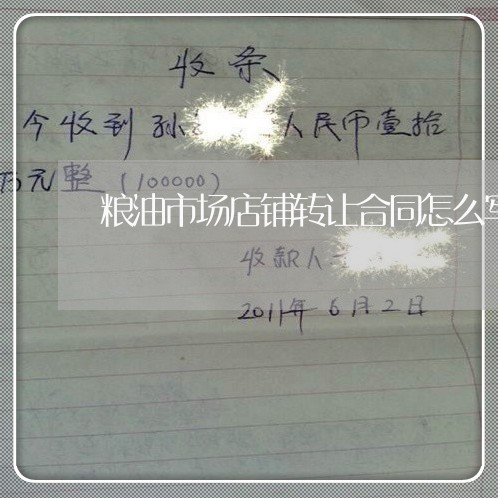 收条
今收到孙 人民币壹拾
万元整（100000）
粮油市场店铺转让合同怎么写
收款人
2011年6月2日